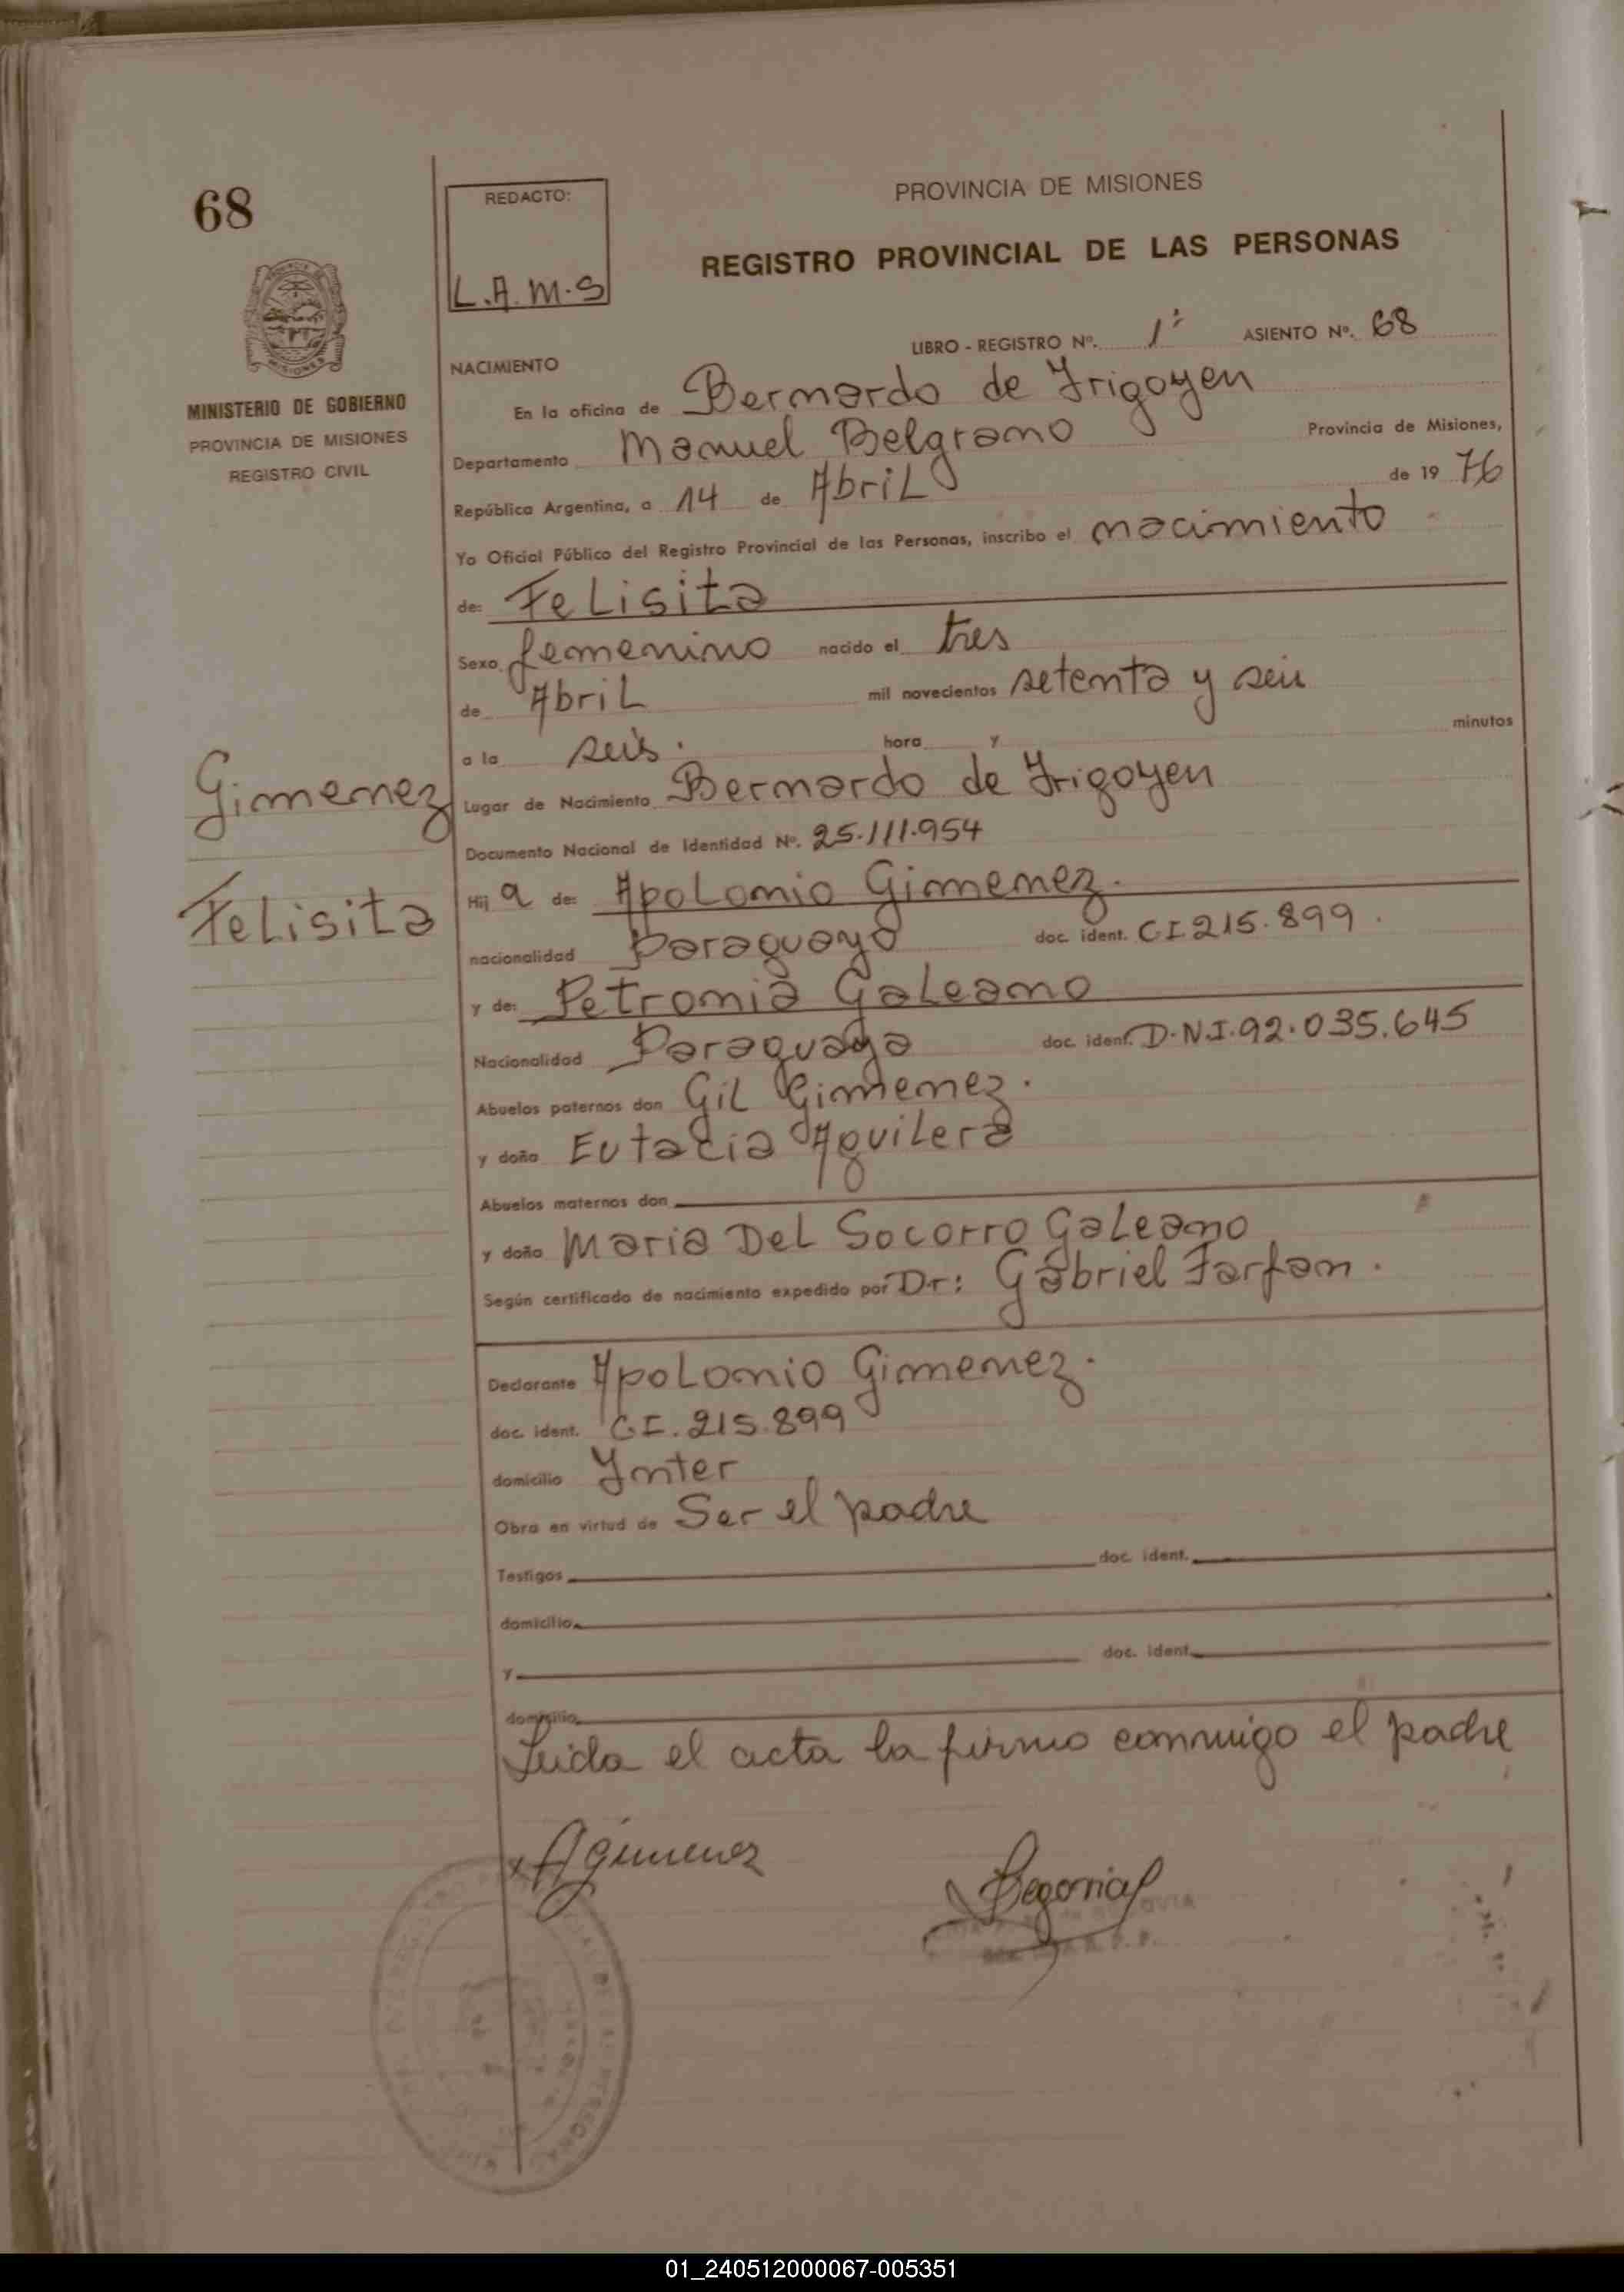 68
REDACTO:
L.A.M.S
PROVINCIA DE MISIONES
REGISTRO PROVINCIAL DE LAS PERSONAS
MINISTERIO DE GOBIERNO
PROVINCIA DE MISIONES
REGISTRO CIVIL
LIBRO - REGISTRO Nº. 1º ASIENTO Nº. 68
NACIMIENTO
En la oficina de Bernardo de Yrigoyen
Departamento Manuel Belgrano Provincia de Misiones,
República Argentina, a 14 de Abril de 19 76
Yo Oficial Público del Registro Provincial de las Personas, inscribo el nacimiento
de: Felisita
Sexo femenino nacido el tres
de Abril mil novecientos setenta y seis
a la seis. hora y minutos
Gimenez
Lugar de Nacimiento Bernardo de Yrigoyen
Documento Nacional de Identidad Nº. 25.111.954
Felisita
Hij a de: Apolonio Gimenez.
nacionalidad Paraguayo doc. ident. C.I. 215.899.
y de: Petronia Galeano
Nacionalidad Paraguaya doc. ident. D.N.I. 92.035.645
Abuelos paternos don Gil Gimenez.
y doña Eutacia Aguilera
Abuelos maternos don
y doña Maria Del Socorro Galeano
Según certificado de nacimiento expedido por Dr: Gabriel Farfan.
Declarante Apolonio Gimenez.
doc. ident. C.I. 215.899
domicilio Ynter
Obra en virtud de Ser el padre
Testigos doc. ident.
domicilio
y doc. ident.
domicilio
Leida el acta la firmo conmigo el padre
AGimenez
01_240512000067-005351